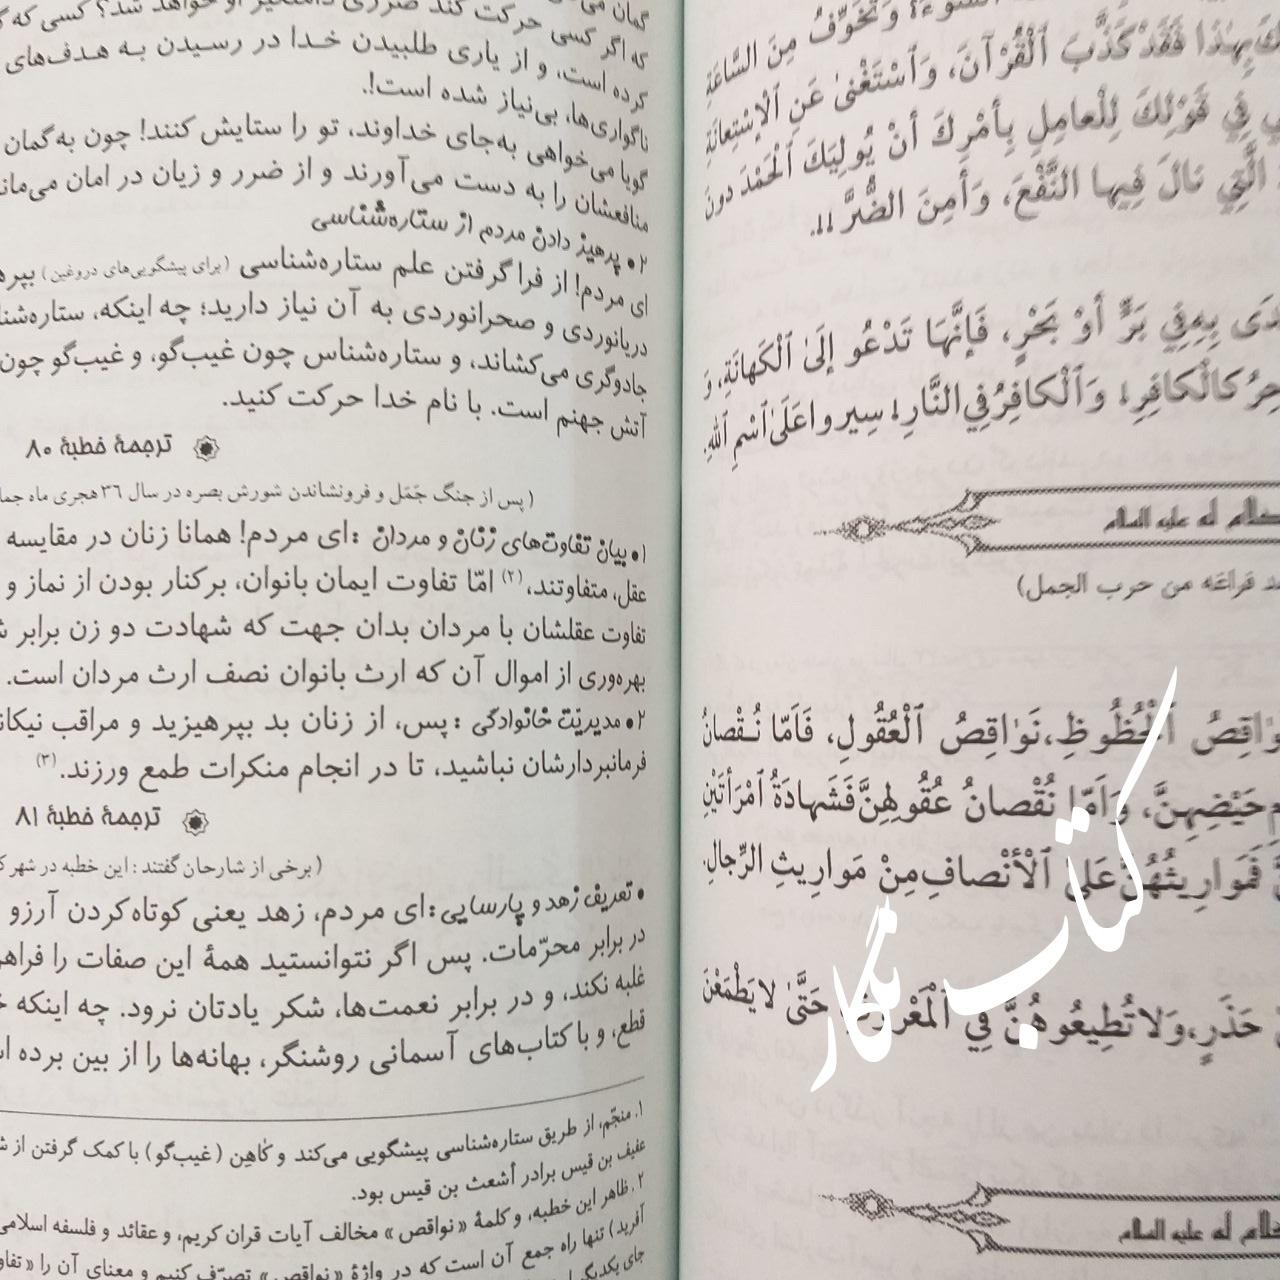 وَتَخَوِّفُ مِنَ السَّاعَةِ
بِهٰذَا فَقَدْ كَذَّبَ ٱلْقُرْآنَ، وَٱسْتَغْنىٰ عَنِ ٱلْإِسْتِعانَةِ
فِي قَوْلِكَ لِلْعامِلِ بِأَمْرِكَ أَنْ يُولِيَكَ ٱلْحَمْدَ دونَ
الَّتِي نالَ فِيها النَّفْعَ، وَأَمِنَ الضُّرَّ!!.
بِهِ فِي بَرٍّ أَوْ بَحْرٍ، فَإِنَّهَا تَدْعُو إِلىَ ٱلْكَهانَةِ، وَ
كَالْكافِرِ! وَٱلْكافِرُ فِي النَّارِ! سِيروا عَلَىٰ ٱسْمِ ٱللهِ.
له علیه السلام
فراغه من حرب الجمل)
ٱلْحُظُوظِ، نَوٰاقِصُ ٱلْعُقُولِ، فَاَمّا نُقْصانُ
حَيْضِهِنَّ، وَاَمّا نُقْصانُ عُقُولِهِنَّ فَشَهادَةُ ٱمْرَأَتَيْنِ
فَمَوارِيثُهُنَّ عَلىَ ٱلْأَنْصافِ مِنْ مَوارِيثِ الرِّجالِ.
حَذَرٍ، وَلا تُطِيعُوهُنَّ فِي ٱلْمَعْرُوفِ حَتَّىٰ لا يَطْمَعْنَ
له علیه السلام
کتاب نگار
گمان
که اگر کسی حرکت کند ضرری دامنگیر او خواهد شد؟ کسی که
کرده است، و از یاری طلبیدن خدا در رسیدن به هدف‌های
ناگواری‌ها، بی‌نیاز شده است!.
گویا می‌خواهی به‌جای خداوند، تو را ستایش کنند! چون به گمان
منافعشان را به دست می‌آورند و از ضرر و زیان در امان
۲• پرهیز دادن مردم از ستاره‌شناسی
ای مردم! از فرا گرفتن علم ستاره‌شناسی (برای پیشگویی‌های دروغین)
دریانوردی و صحرانوردی به آن نیاز دارید؛ چه اینکه،
جادوگری می‌کشاند، و ستاره‌شناس چون غیب‌گو، و غیب‌گو چون
آتش جهنم است. با نام خدا حرکت کنید.
ترجمهٔ خطبهٔ ۸۰
(پس از جنگ جَمَل و فرونشاندن شورش بصره در سال ۳۶ هجری ماه
۱• بیان تفاوت‌های زنان و مردان: ای مردم! همانا زنان در مقایسه
عقل، متفاوتند،(۲) امّا تفاوت ایمان بانوان، برکنار بودن از نماز و
تفاوت عقلشان با مردان بدان جهت که شهادت دو زن برابر
بهره‌وری از اموال آن که ارث بانوان نصف ارث مردان است.
۲• مدیریّت خانوادگی: پس، از زنان بد بپرهیزید و مراقب
فرمانبردارشان نباشید، تا در انجام منکرات طمع ورزند.(۳)
ترجمهٔ خطبهٔ ۸۱
(برخی از شارحان گفتند: این خطبه در شهر
• تعریف زهد و پارسایی: ای مردم، زهد یعنی کوتاه کردن آرزو
در برابر محرّمات. پس اگر نتوانستید همهٔ این صفات را
غلبه نکند، و در برابر نعمت‌ها، شکر یادتان نرود. چه اینکه
قطع، و با کتاب‌های آسمانی روشنگر، بهانه‌ها را از بین برده
۱. منجّم، از طریق ستاره‌شناسی پیشگویی می‌کند و کاهِن (غیب‌گو) با کمک گرفتن از
عفیف بن قیس برادر أشعث بن قیس بود.
۲. ظاهر این خطبه، و کلمهٔ «نواقص» مخالف آیات قران کریم، و عقائد و فلسفه اسلامی
آفرید) تنها راه جمع آن است که در واژهٔ «نواقص» تصرّف کنیم و معنای آن را
جای یکدیگر